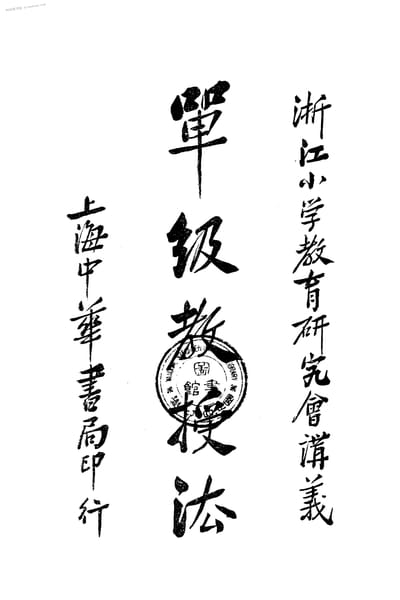 浙江小学教育研究會講義
單級教授法
上海中華書局印行